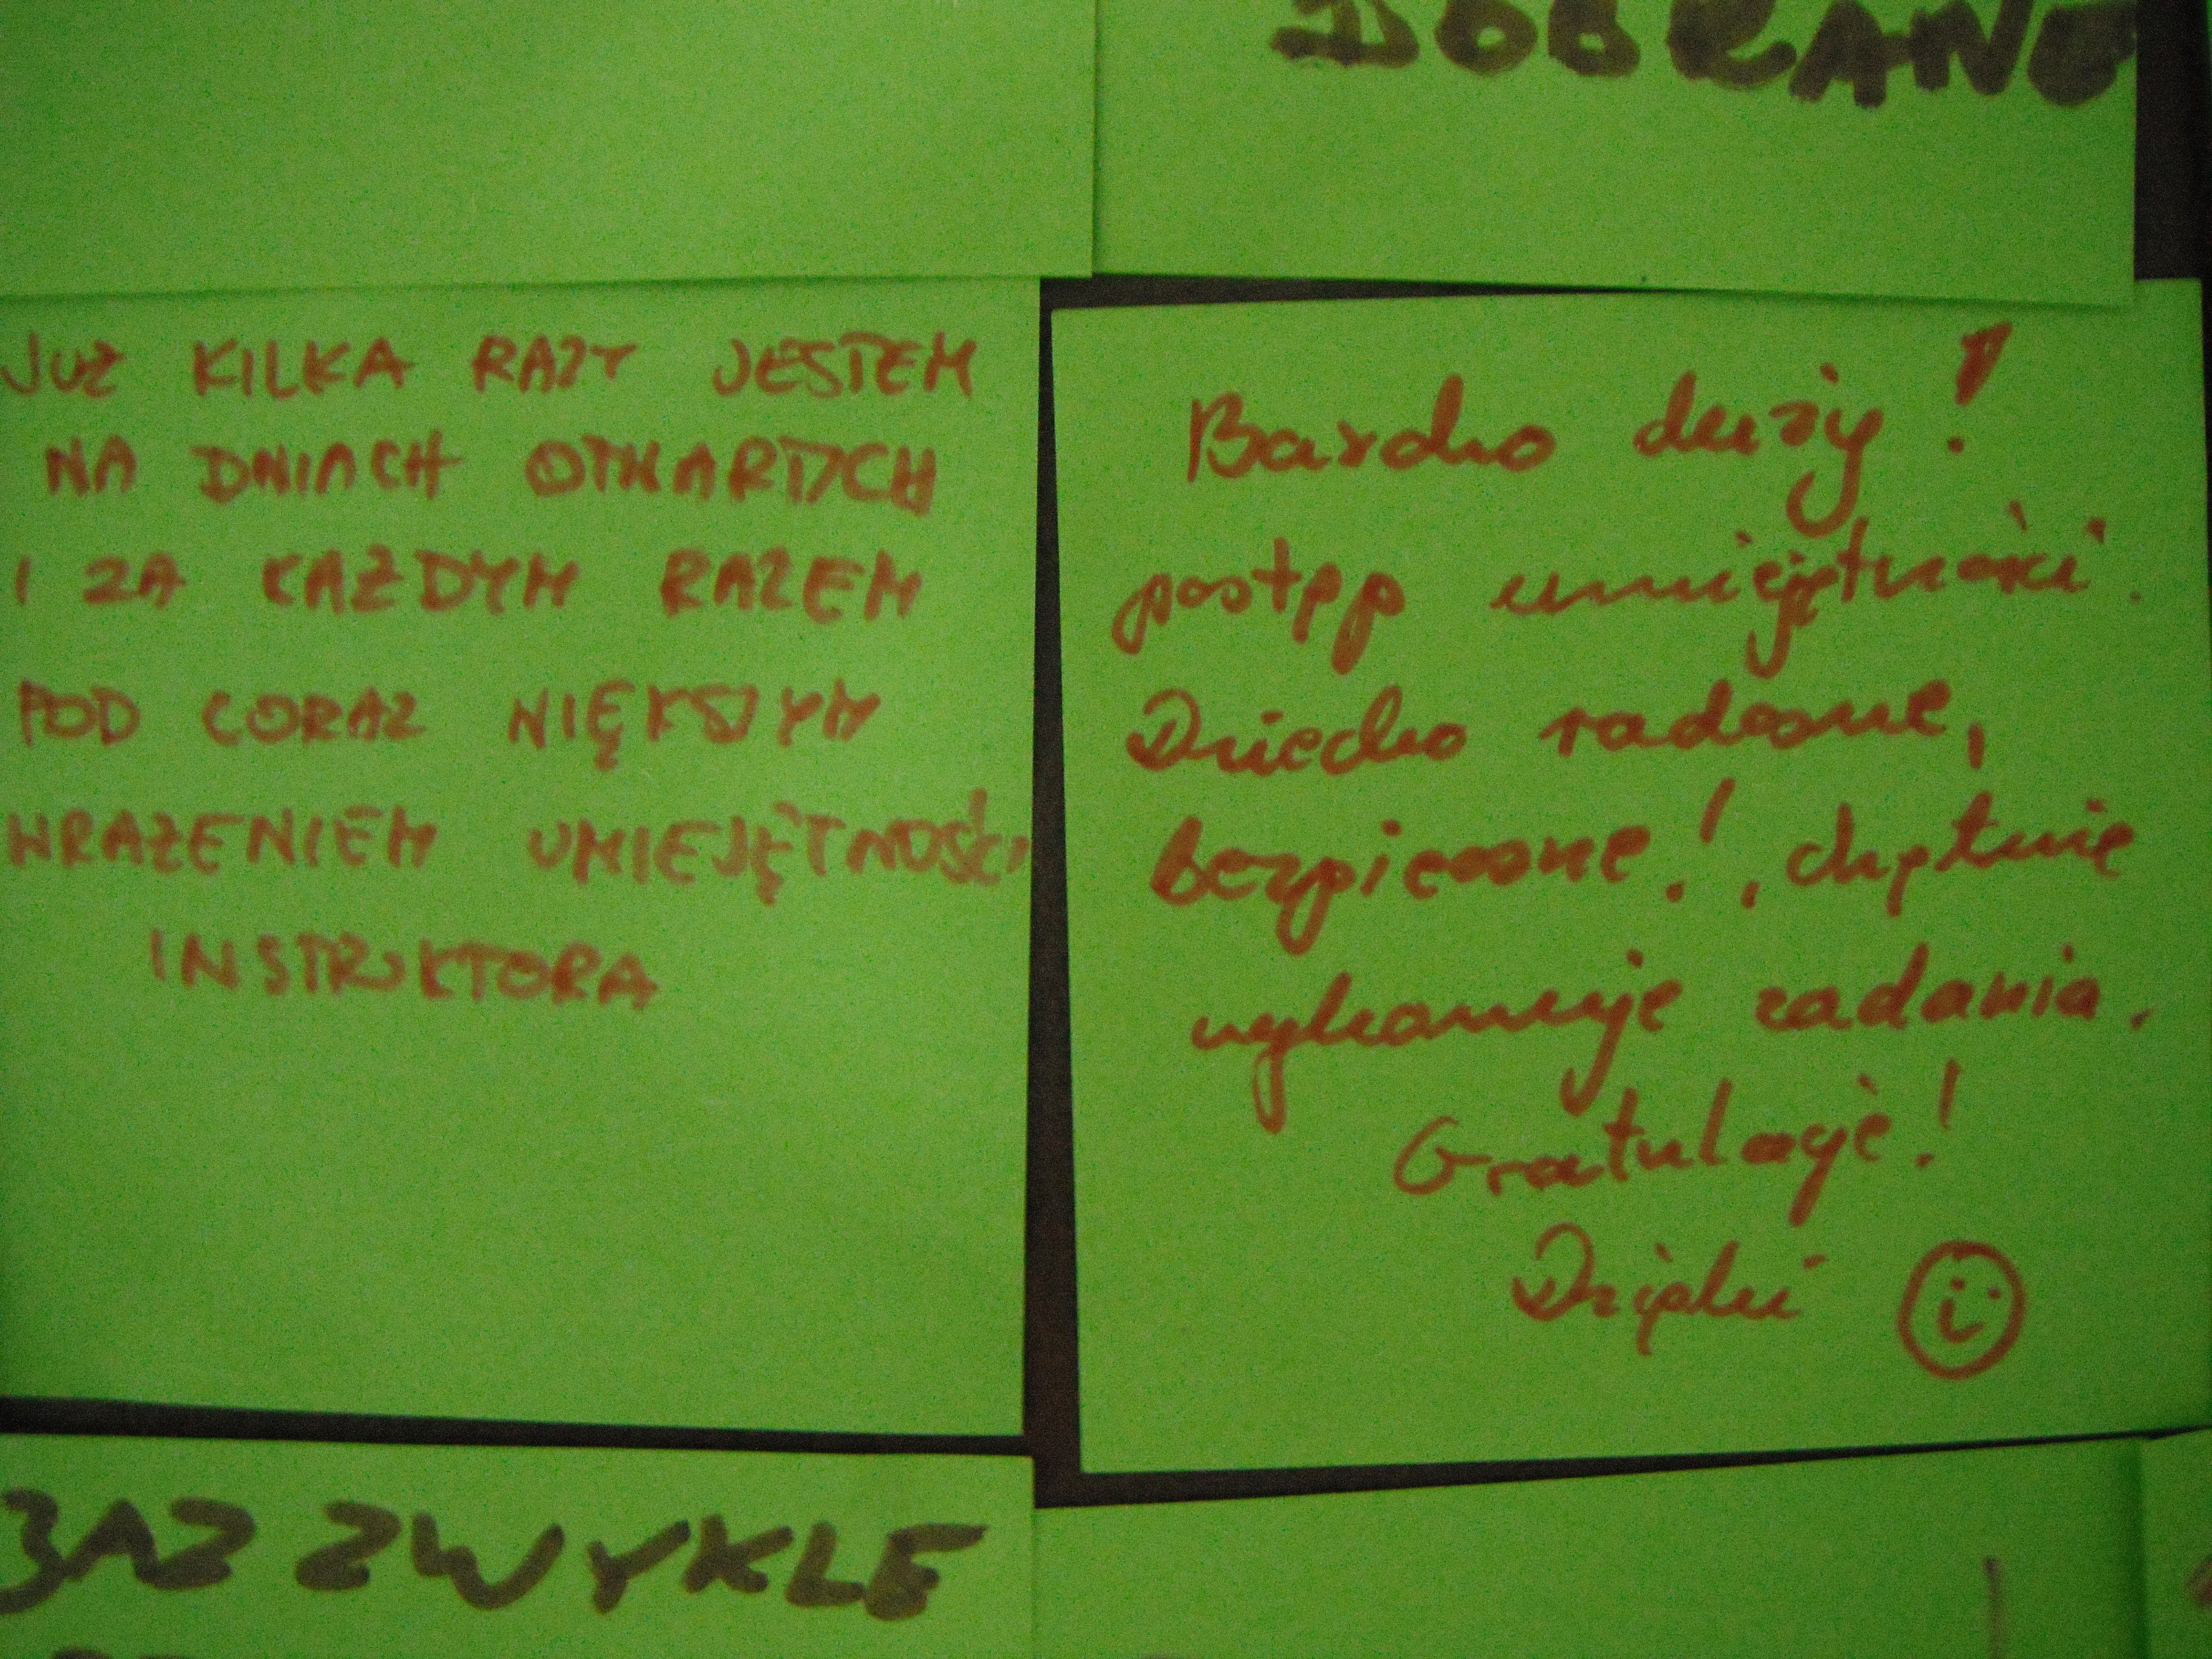 DOBRANO
JUŻ KILKA RAZY JESTEM
NA DNIACH OTWARTYCH
I ZA KAŻDYM RAZEM
POD CORAZ WIĘKSZYM
WRAŻENIEM UMIEJĘTNOŚCI
INSTRUKTORA
Bardzo duży!
postęp umiejętności.
Dziecko radosne,
bezpieczne!, chętnie
wykonuje zadania.
Gratulacje!
Dzięki
ZWYKLE